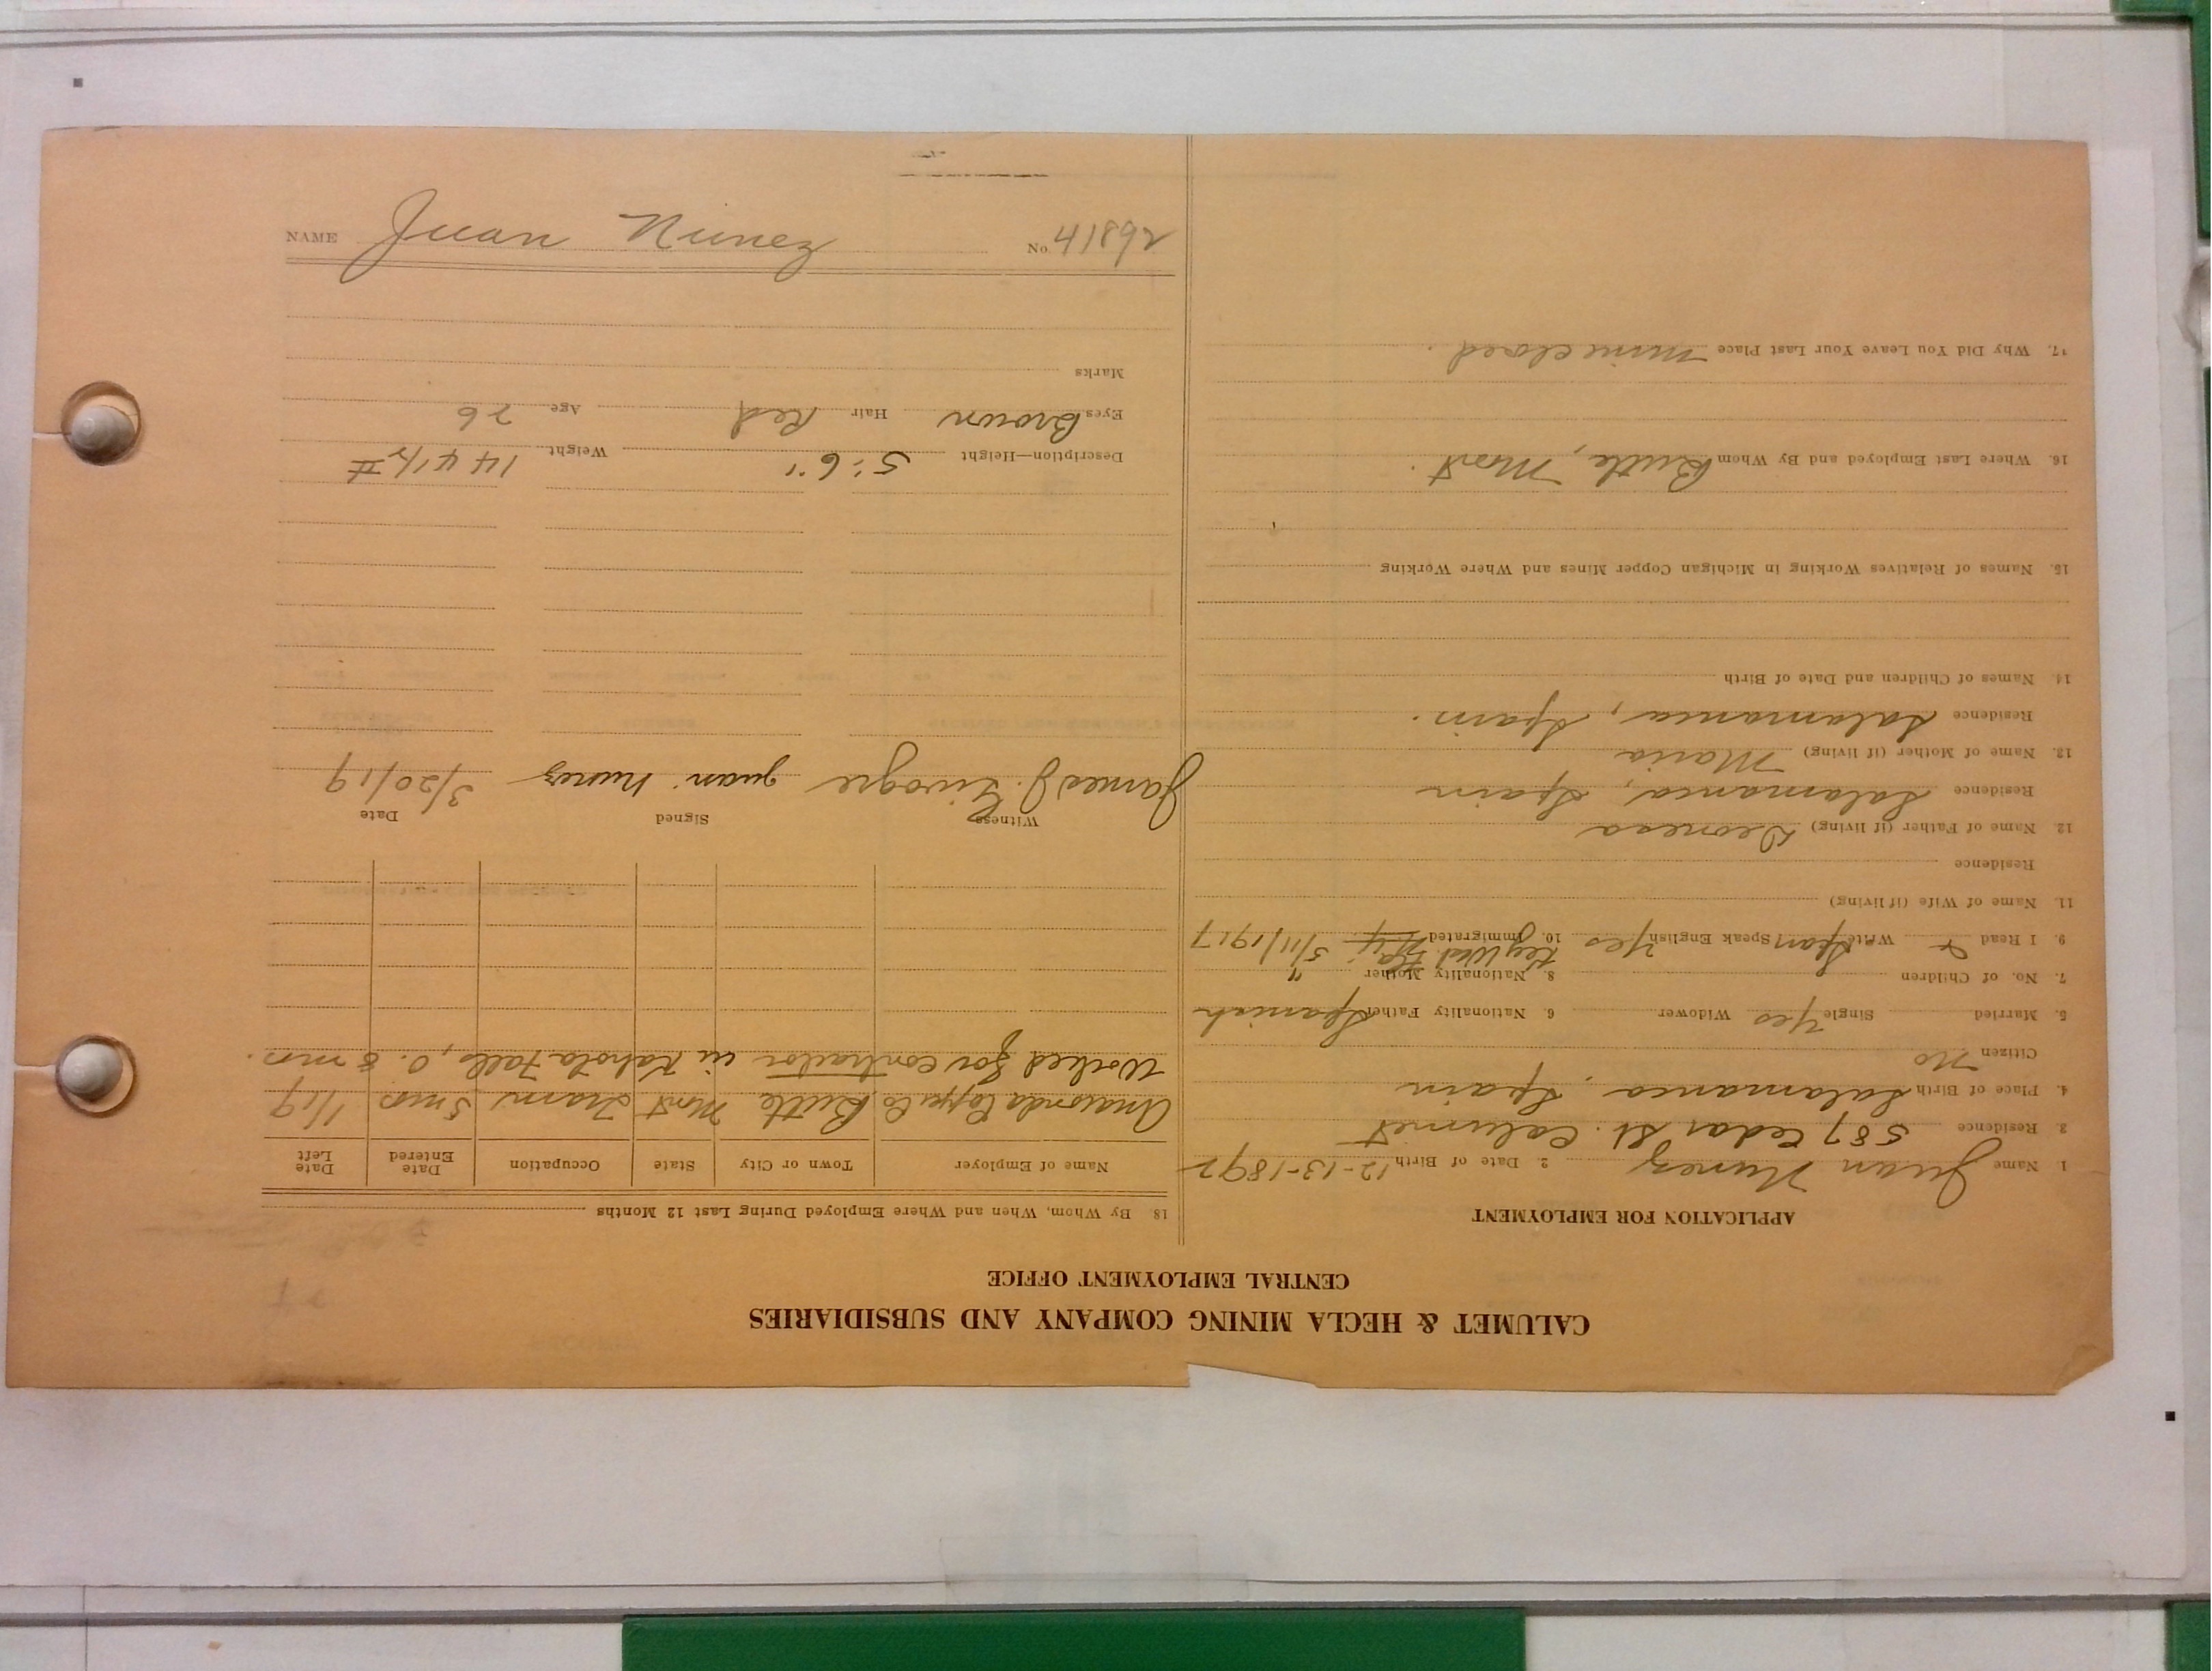 CALUMET & HECLA MINING COMPANY AND SUBSIDIARIES
CENTRAL EMPLOYMENT OFFICE
APPLICATION FOR EMPLOYMENT
1. Name Juan Nunez 2. Date of Birth 12-13-1892
3. Residence 587 Cedar St. Calumet
4. Place of Birth Salamanca, Spain
Citizen No
5. Married Single Yes Widower 6. Nationality Father Spanish
7. No. of Children 8. Nationality Mother "
9. I Read & Write Span Speak English Yes 10. Immigrated Key West 5/11/1917
11. Name of Wife (if living)
Residence
12. Name of Father (if living)
Residence Salamanca, Spain
13. Name of Mother (if living) Maria
Residence Salamanca, Spain.
14. Names of Children and Date of Birth
15. Names of Relatives Working in Michigan Copper Mines and Where Working
16. Where Last Employed and By Whom Butte, Mont.
17. Why Did You Leave Your Last Place Mine closed.
18. By Whom, When and Where Employed During Last 12 Months
Name of Employer Town or City State Occupation Date Entered Date Left
Anaconda Copper Co Butte Mont Tram 5 mos 1/19
Worked for contractor in Falls, O. 8 mos.
Witness Signed Date
James J. Juan Nunez 3/20/19
Description—Height 5' 6" Weight 144 1/2 #
Eyes Brown Hair Red Age 26
Marks
NAME Juan Nunez No. 41892